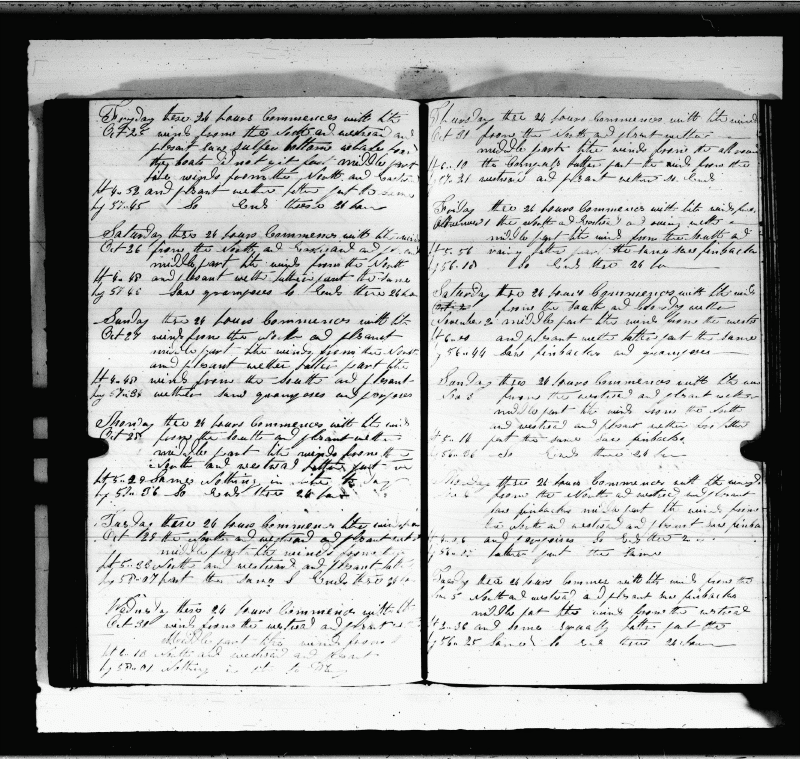 Fryday these 24 hours Commences with lite
Oct 25 winds from the North and westead and
plesant saw sulfer bottom whale low
they boats did not git fast middle part
lite winds from the North and Eastead
lt 4-52 and plesant wether latter part the same
lg 57-45 So Ends these 24 hour
Saturday these 24 hours Commences with lite wind
Oct 26 from the North and Eastead and
middle part lite winds from the North
lt 4-48 and plesant wether latter part the same
lg 57-46 Saw grampeses so Ends these 24 hour
Sunday these 24 hours Commences with lite
Oct 27 winds from the North and plesant
middle part lite winds from the North
and plesant wether latter part lite
lt 4-48 winds from the South and plesant
lg 57-38 wether saw grampeses and porposes
Monday these 24 hours Commences with lite wind
Oct 28 from the South and plesant wether
middle part lite winds from the
North and westead latter part
lt 5-29 same Nothing in site to Day
lg 58-06 So Ends these 24 hour
Tuesday these 24 hours Commences lite wind from
Oct 29 the North and westead and plesant
middle part lite winds from
lt 5-22 North and westead and plesant latter
lg 58-07 part the same So Ends these 24 hour
Wednesday these 24 hours Commences with lite
Oct 30 winds from the westead and plesant
Middle part lite winds from
lt 6-10 North and westead and plesant
lg 58-01 Nothing in site to Day
Thursday these 24 hours Commences with lite winds
Oct 31 from the North and plesant wether
middle part lite winds from the all round
lt 6-10 the Compass latter part the wind from the
lg 57-21 westead and plesant wether So Ends
Friday these 24 hours Commences with lite winds from
November 1 the North and Eastead and wether
middle part lite winds from the South and
lt 5-56 latter part the same saw finbacks
lg 56-18 So Ends these 24 hour
Saturday these 24 hours Commences with lite winds
Oct 2 from the South and wether
November 2 middle part lite winds from the westead
lt 6-00 and plesant wether latter part the same
lg 56-44 Saw finbacks and grampeses
Sunday these 24 hours Commences with lite wind
Nov 3 from the westead and plesant wether
middle part lite winds from the North
and westead and plesant wether latter
lt 5-16 part the same saw finbacks
lg 56-26 So Ends these 24 hour
Monday these 24 hours Commences with lite winds
from the North and westead and plesant
saw finbacks middle part lite winds from
the North and westead and plesant saw finbacks
and porpoises So Ends these
latter part the same
Tuesday these 24 hours Commences with lite winds from the
Nov 5 North and westead and plesant saw finbacks
middle part lite winds from the westead
lt 2-36 and some squally latter part the
lg 56-25 Same So Ends these 24 hour